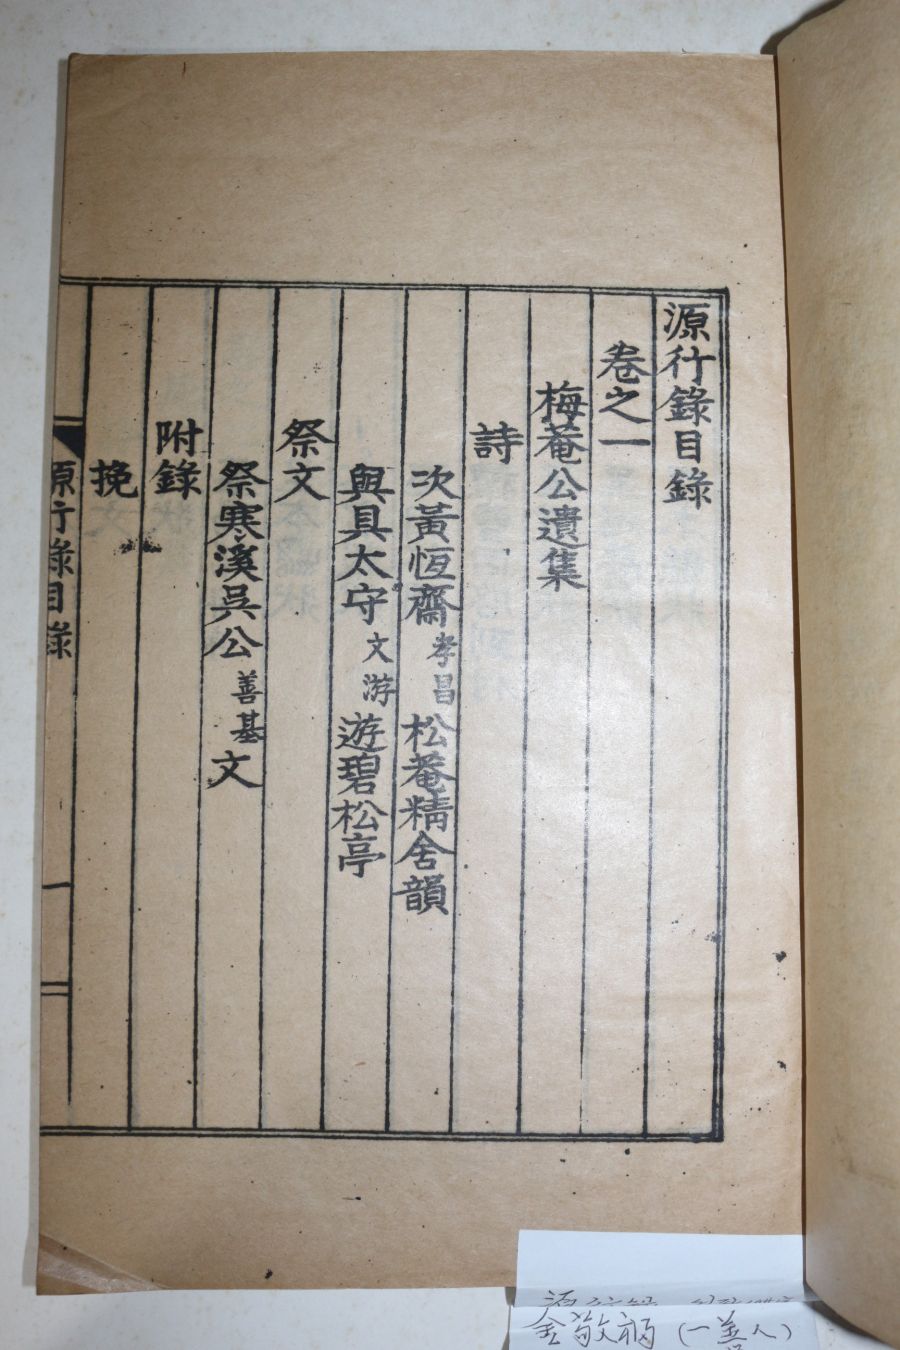 源行錄目錄
卷之一
梅菴公遺集
詩
次黃恆齋孝昌松菴精舍韻
與具太守文游遊碧松亭
祭文
祭寒溪吳公善基文
附錄
挽
源行錄目錄 一
金敬禍 (一善人)